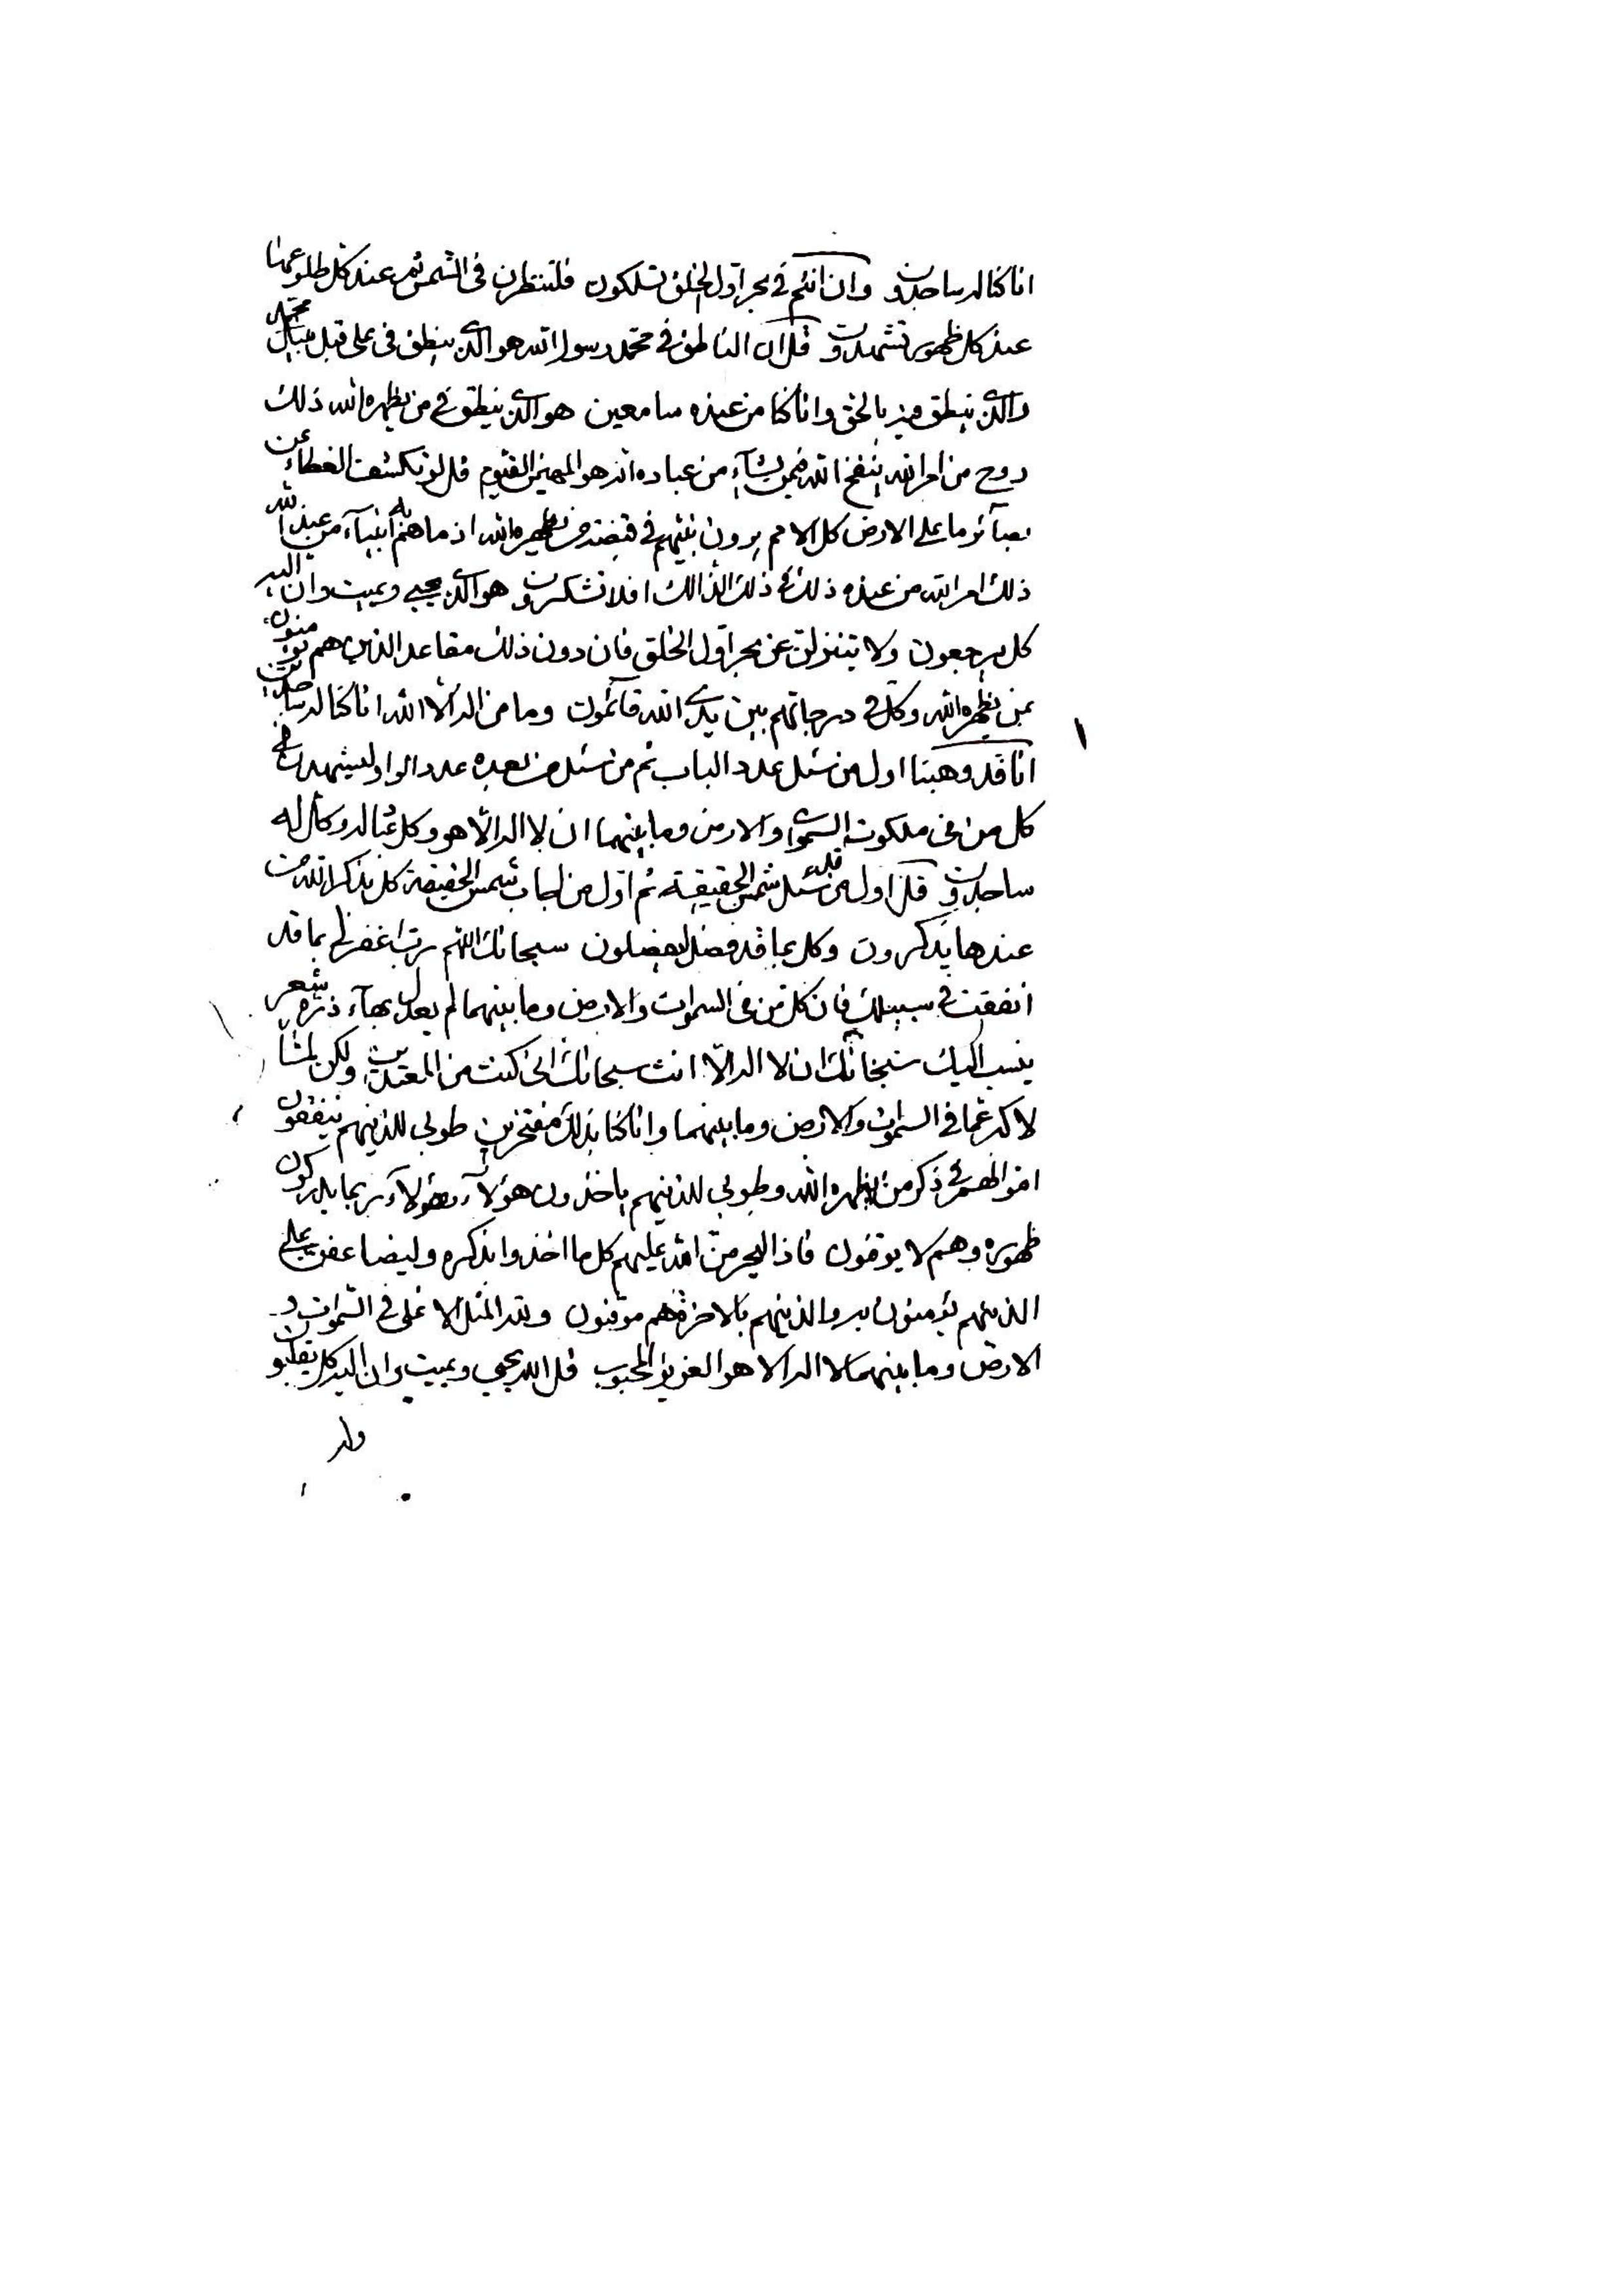 انا كنا له ساجدون وان انتم في بحر اول الخلق تسلكون فلتنظرن في الشمس ثم عند كل طلوعها
عند كل ظهور تشهدون قل ان الناطق في محمد رسول الله هو الذي ينطق في علي قبل محمد
والذي ينطق فيه بالحق وانا كنا من عنده سامعين هو الذي ينطق في من يظهره الله ذلك
روح من امر الله ينفخ الله فيمن يشاء من عباده انه هو المهيمن القيوم قل لو نكشف الغطاء عن
بصائر ما على الارض كل الامم يرون نبيهم في قبضة من يظهره الله اذ ما هم انبياء من عند الله
ذلك امر الله من عنده ذلك ذلك افلا تشكرون هو الذي يحيي ويميت وان اليه
كل يرجعون ولا يتنزلن عن بحر اول الخلق فان دون ذلك مقاعد الذين هم يؤمنون
بمن يظهره الله وكل في درجاتهم بين يدي الله قائمون وما من اله الا الله انا كنا له ساجدين
انا قد وهبنا اول من سئل عدد الباب ثم من سئل من بعده عدد الواو ليشهدن في
كل من في ملكوت السموات والارض وما بينهما ان لا اله الا هو وكل عباد له وكل له
ساجدون قل اول من سئل شمس الحقيقة ثم اول من اجاب شمس الحقيقة كل بذكر الله من
عندها يذكرون وكل بما قد فصل يفصلون سبحانك اللهم رب اغفر لي بما قد
انفقت في سبيلك فان كل من في السموات والارض وما بينهما لم يعدل بهاء ذرة شعر
ينسب اليك سبحانك ان لا اله الا انت سبحانك اني كنت من المعتدين ولكن لمثال
لاكبر عما في السموات والارض وما بينهما وانا كنا بذلك مفتخرين طوبى للذينهم ينفقون
اموالهم في ذكر من يظهره الله وطوبى للذينهم ياخذون هؤلاء وهؤلاء ربما يدركون
ظهوره وهم لا يوقنون فاذا ليحرمن الله عليهم كل ما اخذوا بذكره وليضاعفن على
الذينهم يؤمنون به والذينهم بالاخرة هم موقنون ولله المثل الاعلى في السموات و
الارض وما بينهما لا اله الا هو العزيز المحبوب قل الله يحيي ويميت وان اليه كل ينقلبون
وله